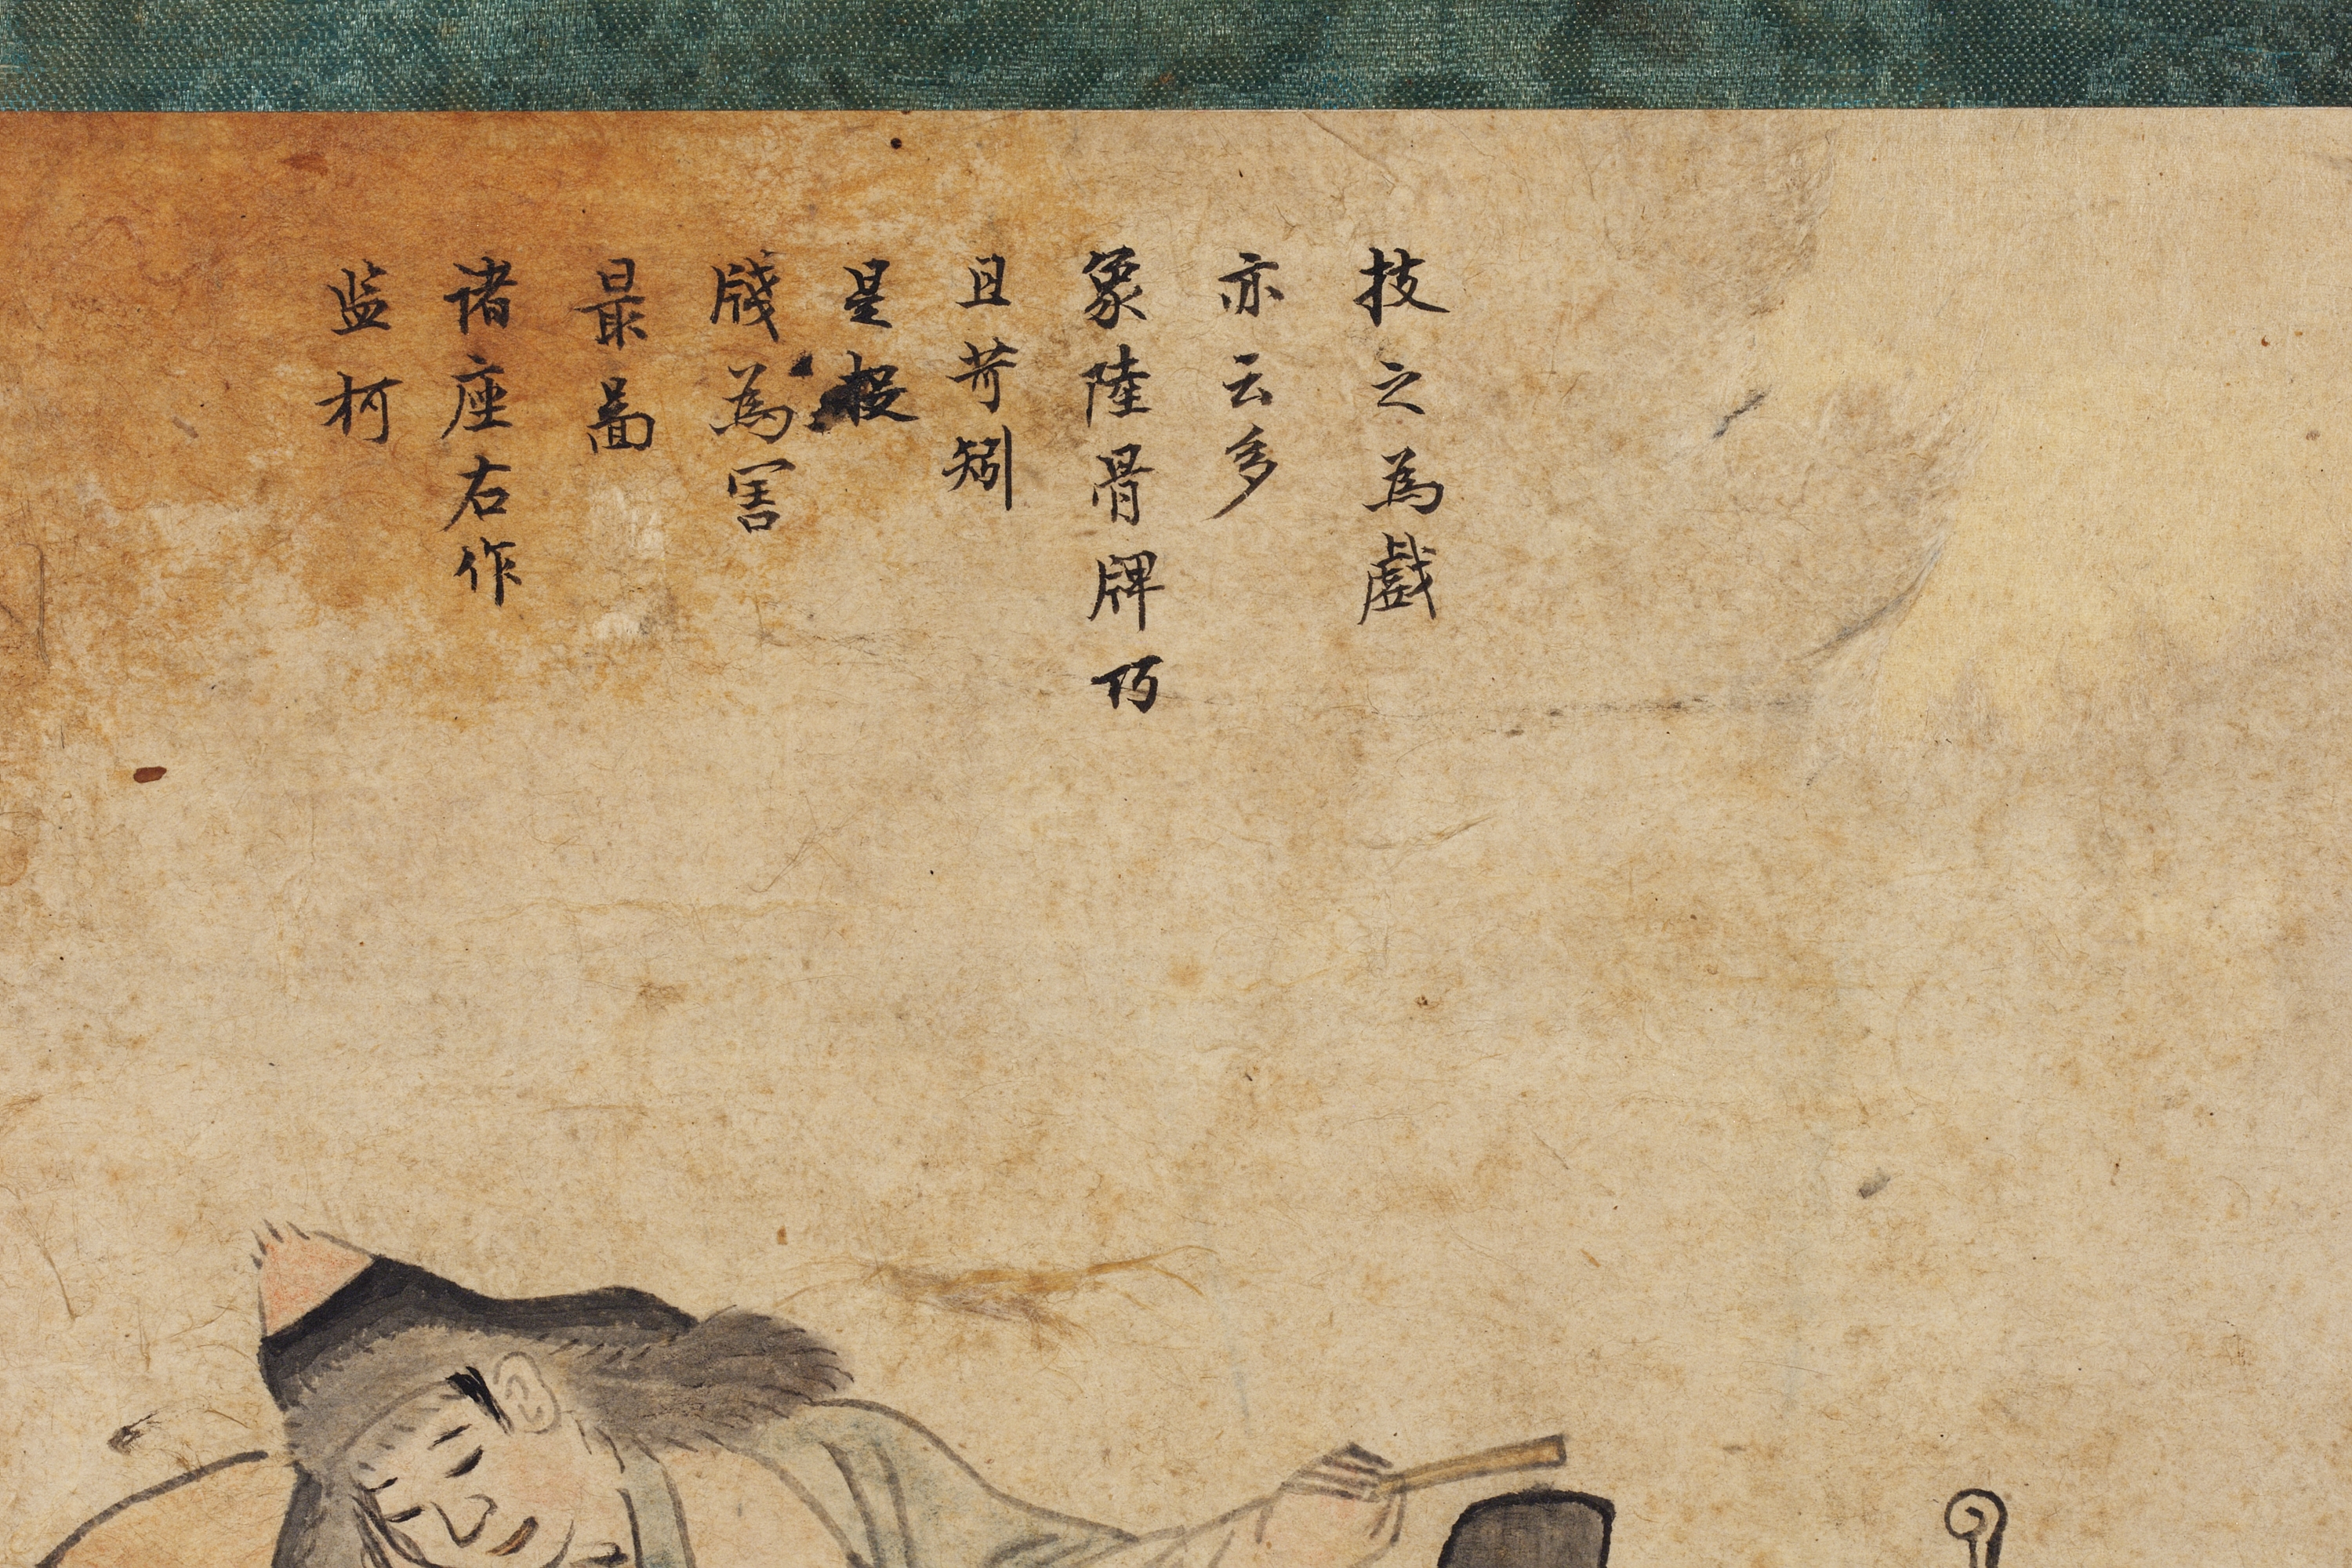 技之為戲
亦云多
象陸骨牌巧
且苛矧
是投
牋為害
最啚
諸座右作
监柯